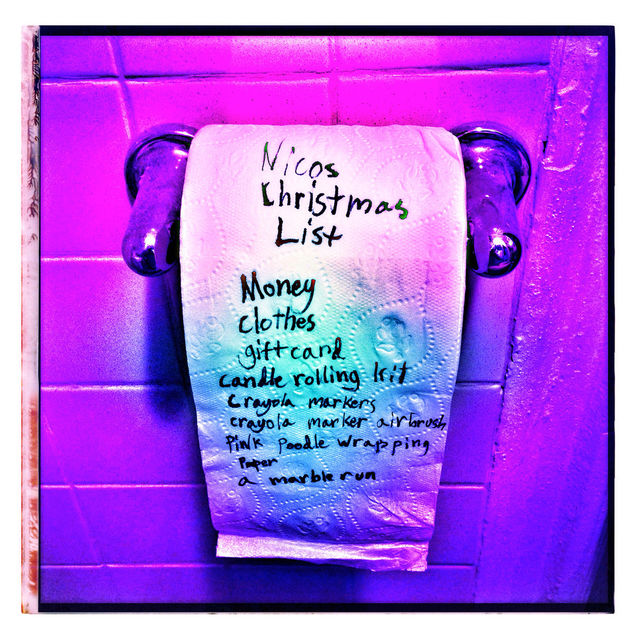 Nicos
Christmas
List
Money
clothes
giftcard
candle rolling kit
Crayola markers
crayola marker airbrush
Pink Poodle wrapping
Paper
a marble run